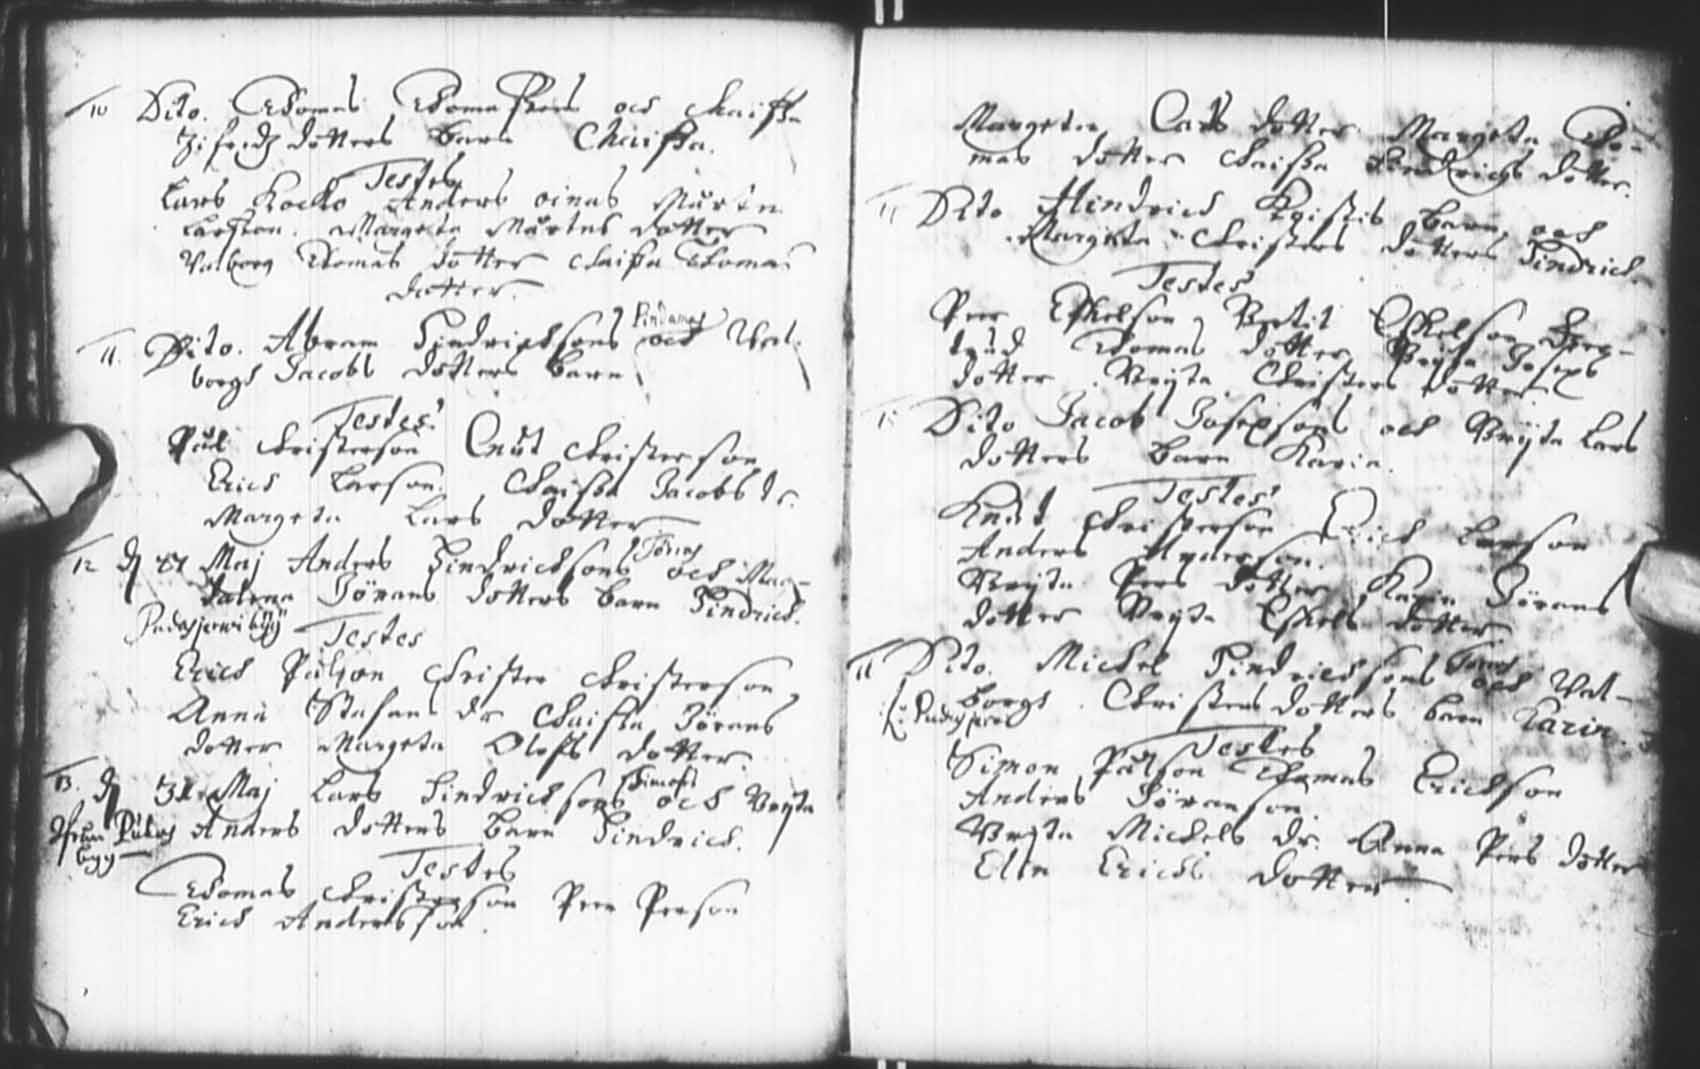 10 Dito. Thomas Thomassons och Chaissa
Zifridz dotters barn Chaissa.
Testes
Lars Kocko Anders oinas Mårten
Larsson. Margeta Mårtens dotter
Valborg Thomas dotter Chaissa Thomas
dotter.
11. Dito. Abram Hindrichsons och Val-
borgs Jacobs dotters barn
Testes
Påul Christerson Cnut Christerson
Erich Larson. Chaissa Jacobs dr.
Margeta Lars dotter
12 Maj Anders Hindrichsons och Mag-
dalena Jörans dotters barn Hindrich.
Padasjerwi byy
Testes
Erich Pålson Christer Christerson
Anna Stafans dr Chaissa Jörans
dotter Margeta Olofs dotter.
13. Maj Lars Hindrichsons Simons och Bryta
Anders dotters barn Hindrich.
byy
Testes
Thomas Christerson Peer Person
Erich Andersson.
Margeta Lars dotter Margeta Tho-
mas dotter Chaissa Hindrichs dotter.
Dito Hindrich barn och
Margeta Christers dotters Hindrich
Testes
Peer Eskelson Bertil Eskelson Ger-
trud Thomas dotter Bryta Joseps
dotter. Bryta Christers dotter
15 Dito Jacob Josepsons och Bryta Lars
dotters barn Karin.
Testes
Knut Christerson Erich Larson
Anders Anderson.
Bryta Pers dotter Karin Jörans
dotter Bryta Eskels dotter.
Dito. Michel Hindrichsons och Val-
borgs Christers dotters barn Karin.
Testes
Simon Pålson Thomas Erichson
Anders Jöranson
Bryta Michels dr. Anna Pers dotter
Elin Erichs dotter.